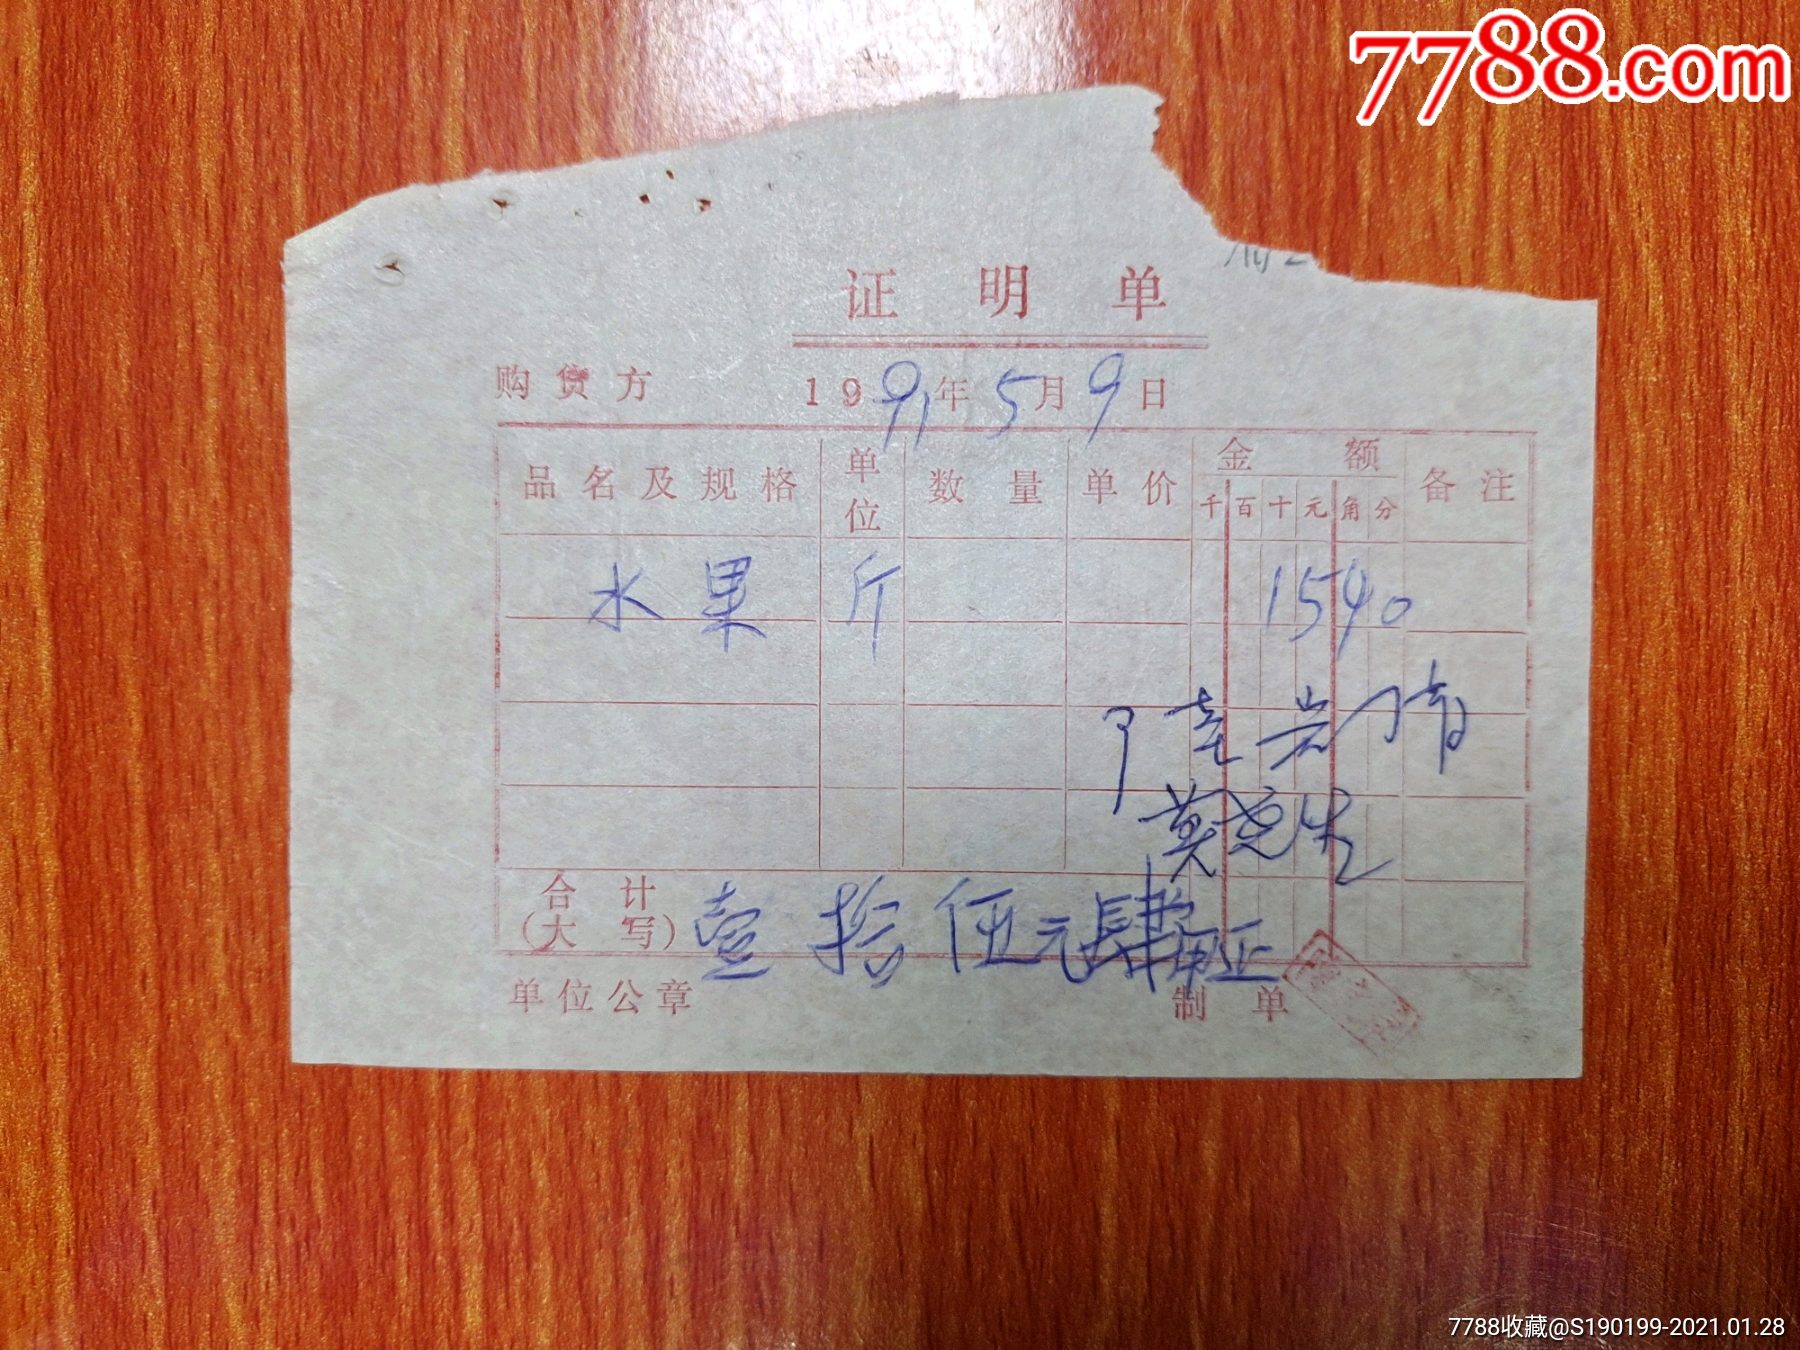 7788.com
证明单
购货方 1991年5月9日
品名及规格 单位 数量 单价 金额 备注
千百十元角分
水果 斤 1540
莫
合计(大写) 壹拾伍元肆角正
单位公章 制单
7788收藏@S190199-2021.01.28